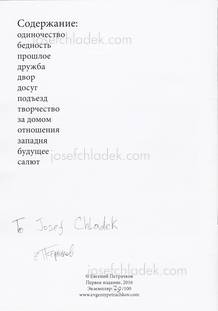 josefchladek.com
Содержание:
одиночество
бедность
прошлое
дружба
двор
досуг
подъезд
творчество
за домом
отношения
западня
будущее
салют
josefchladek.com
To Josef Chladek
josefchladek.com
© Евгений Петрачков
Первое издание, 2016
Экземпляр /100
www.evgenypetrachkov.com